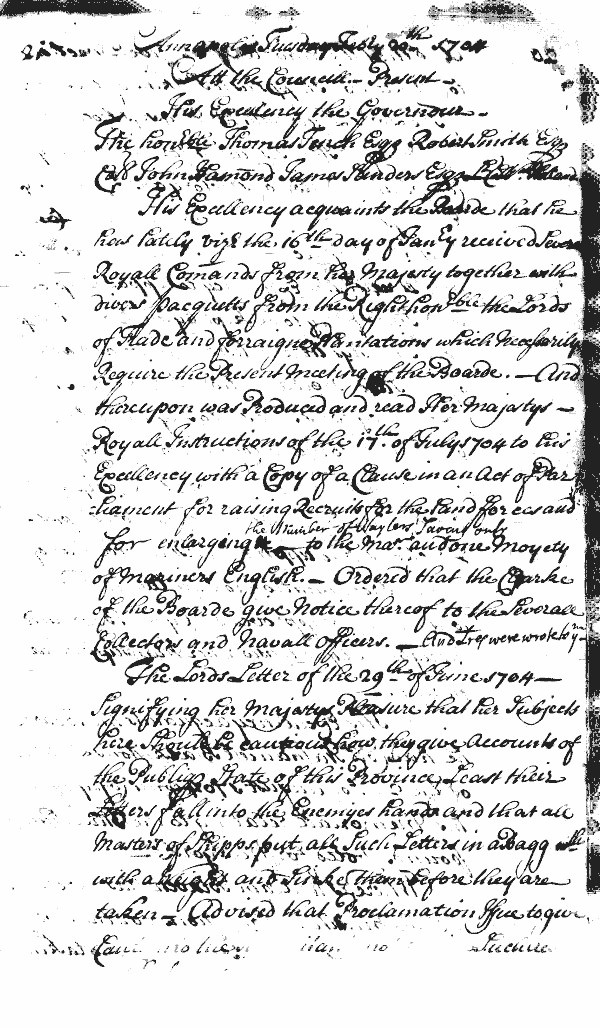 Annapolis Tuesday 1704
Att the Councill - Present -
His Excellency the Governour -
The honble Thomas Tench Esqr Robert Smith Esqr
Coll John Hamond James Sanders Esqr
His Excellency acquaints the Boarde that he
has lately vizt the 16th day of Janry received Severall
Royall Comands from her Majesty together with
divers pacquetts from the Right honble the Lords
of Trade and forraigne Plantations which Necessarily
Require the Present Meeting of the Boarde. - And
thereupon was Produced and read Her Majestys -
Royall Instructions of the 17th of July 1704 to his
Excellency with a Copy of a Clause in an Act of Par
liament for raising Recruits for the Land forces and
the Number of Saylers Savent only
for enlarging to the Mar. and one Moyety
of Mariners English. - Ordered that the Clarke
of the Boarde give Notice thereof to the Severall
Collectors and Navall Officers. - And Lres were wrote to ym
The Lords Letter of the 29th of June 1704 -
Signifying her Majestys Pleasure that her Subjects
here Should be cautious how they give Accounts of
the Publiq State of this Province, Least their
Letters fall into the Enemyes hands and that all
Masters of Shipps put all Such Letters in a Bagg
with a weight and Sinke them before they are
taken - Advised that Proclamation Issue to give